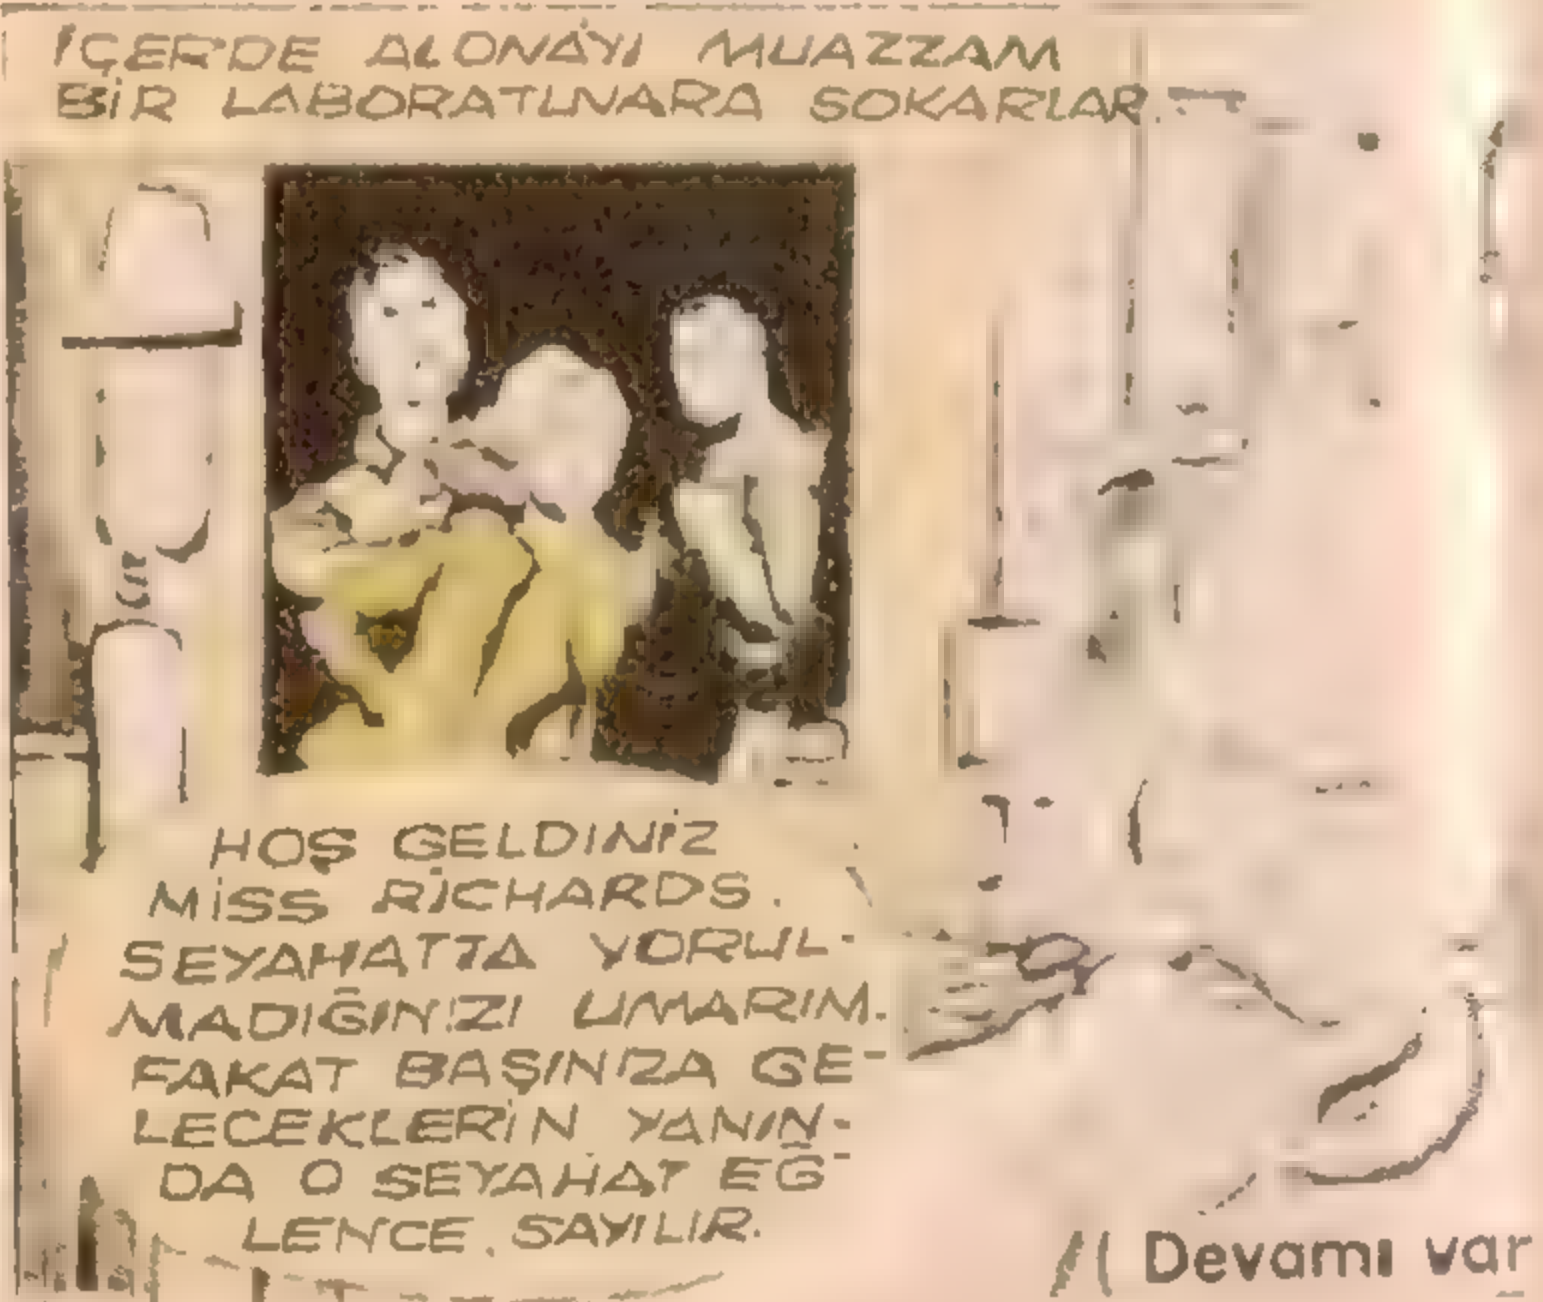 İÇERDE ALONA'YI MUAZZAM
BİR LABORATUVARA SOKARLAR.
HOŞ GELDINİZ
MİSS RİCHARDS.
SEYAHATTA YORUL-
MADIĞINIZI UMARIM.
FAKAT BAŞINIZA GE-
LECEKLERİN YANIN-
DA O SEYAHAT EĞ-
LENCE SAYILIR.
Devamı var